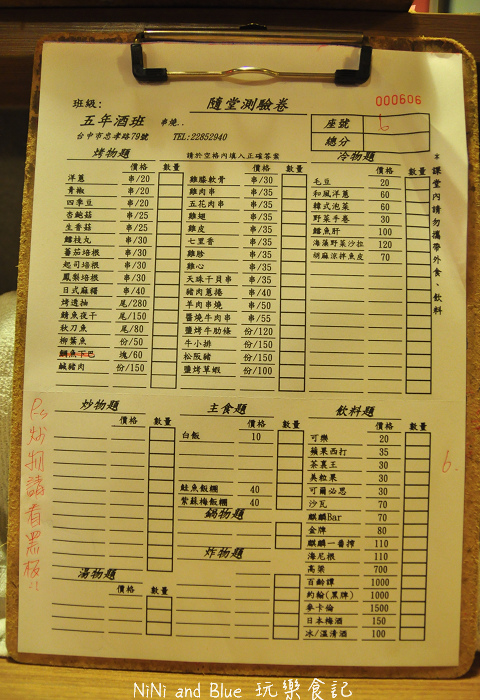 000606
班級: 隨堂測驗卷
五年酒班 串燒..
台中市忠孝路79號 TEL:22852940
座號 6
總分
請於空格內填入正確答案
*課堂內請勿攜帶外食、飲料
烤物題
價格 數量
洋蔥 串/20
青椒 串/20
四季豆 串/20
杏鮑菇 串/25
生香菇 串/25
鱈枝丸 串/30
蕃茄培根 串/30
起司培根 串/30
鳳梨培根 串/30
日式麻糬 串/40
烤透抽 尾/280
鯖魚夜干 尾/150
秋刀魚 尾/80
柳葉魚 份/50
鯛魚下巴 塊/60
鹹豬肉 份/150
價格 數量
雞膝軟骨 串/35
雞肉串 串/35
五花肉串 串/35
雞翅 串/35
雞皮 串/35
七里香 串/35
雞胗 串/35
雞心 串/35
天味干貝串 串/35
豬肉蔥捲 串/40
羊肉串燒 串/50
醬燒牛肉串 串/55
鹽烤牛肋條 份/120
牛小排 份/150
松阪豬 份/150
鹽烤草蝦 份/100
冷物題
價格 數量
毛豆 20
和風洋蔥 60
韓式泡菜 60
野菜手卷 30
鱈魚肝 100
海藻野菜沙拉 120
胡麻涼拌魚皮 70
炒物題
價格 數量
Ps炒物請看黑板
湯物題
價格 數量
主食題
價格 數量
白飯 10
鮭魚飯糰 40
紫蘇梅飯糰 40
鍋物題
炸物題
飲料題
價格 數量
可樂 20
蘋果西打 35
茶裏王 30
美粒果 30
可爾必思 30
沙瓦 70
麒麟Bar 70
金牌 80
麒麟一番搾 110
海尼根 110
高粱 700
百齡譚 1000
約翰(黑牌) 1000
麥卡倫 1500
日本梅酒 150
冰/溫清酒 100
6.
NiNi and Blue 玩樂食記